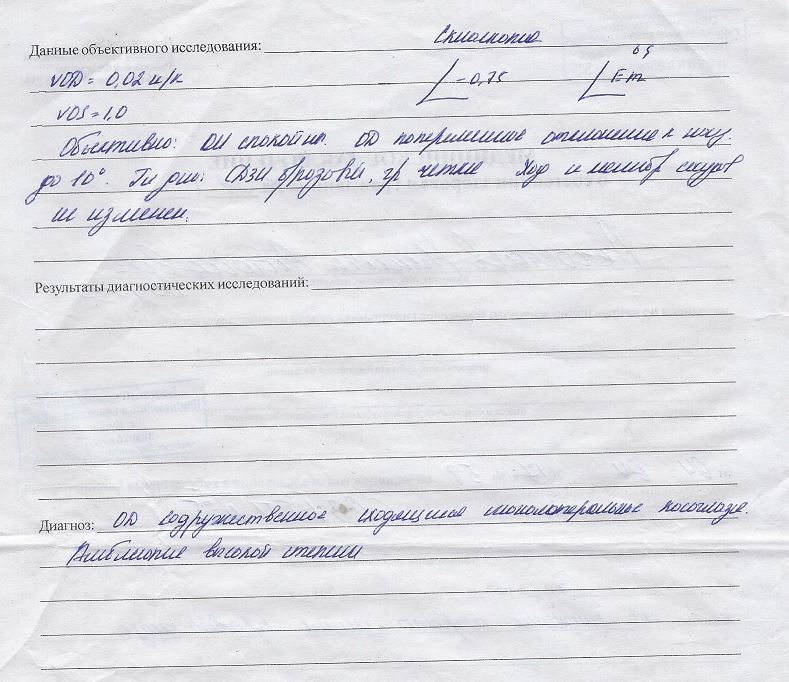 Данные объективного исследования: Скиаскопия
VOD = 0,02 н/к -0,75 OS Em
VOS = 1,0
Объективно: ОИ спокойны. OD попеременное отклонение к носу
до 10°. Гл дно: ДЗН розовый, гр четкие Ход и калибр сосудов
не изменен.
Результаты диагностических исследований:
Диагноз: OD содружественное сходящееся монолатеральное косоглазие.
Амблиопия высокой степени